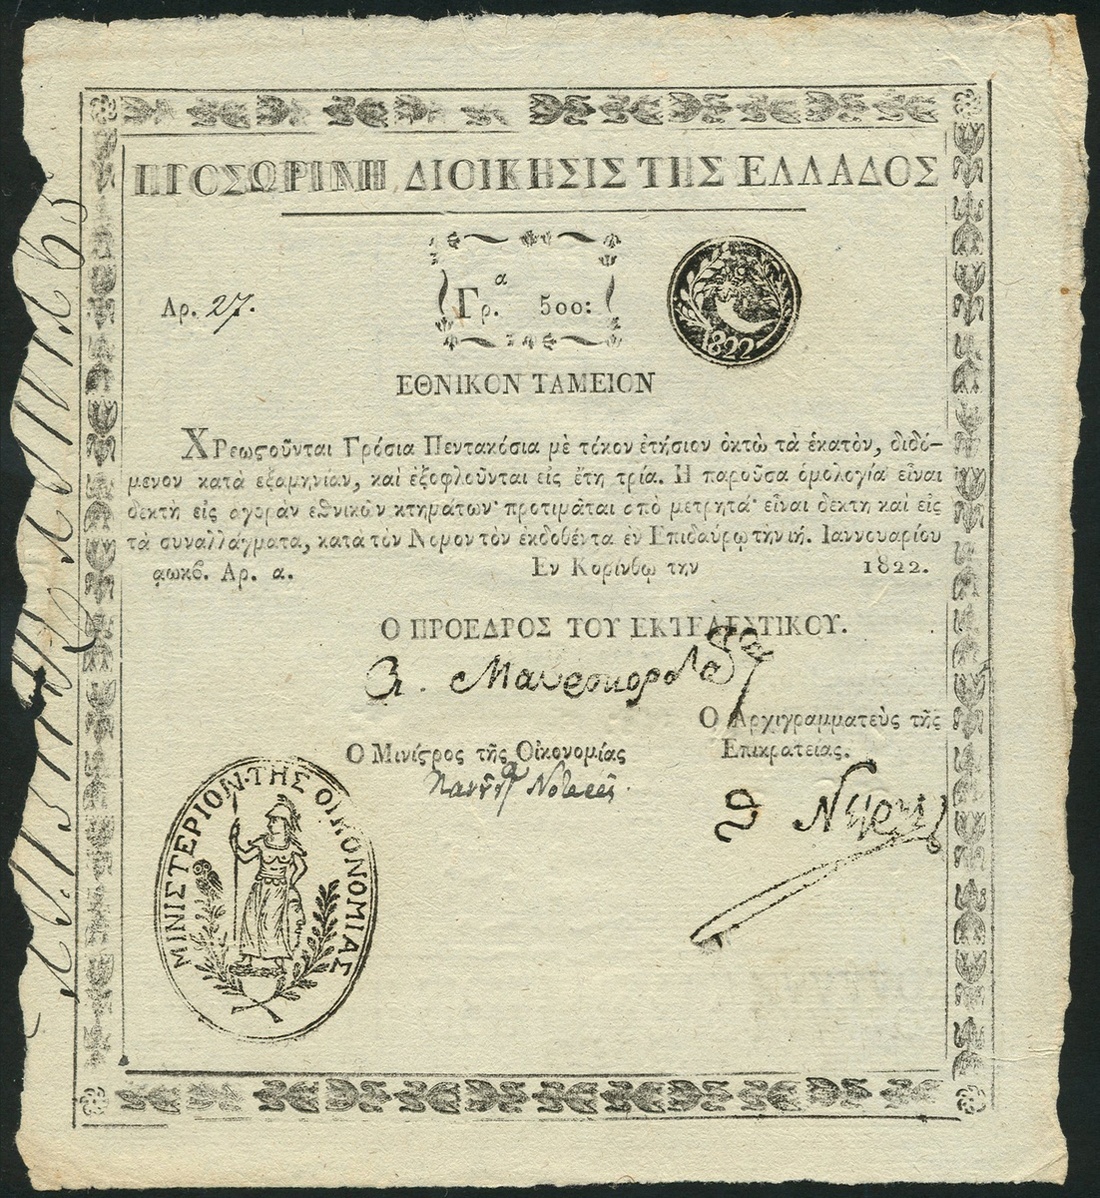 ΠΡΟΣΩΡΙΝΗ ΔΙΟΙΚΗΣΙΣ ΤΗΣ ΕΛΛΑΔΟΣ
Αρ. 27.
Γρ.α 500:
1822
ΕΘΝΙΚΟΝ ΤΑΜΕΙΟΝ
ΧΡεωςοῦνται Γρόσια Πεντακόσια μὲ τόκον ἐτήσιον ὀκτὼ τὰ ἑκατὸν, διδό-
μενον κατὰ εξαμηνίαν, καὶ ἐξοφλοῦνται εἰς ἔτη τρία. Η παροῦσα ὁμολογία εἶναι
δεκτὴ εἰς αγορὰν εθνικῶν κτημάτων· προτιμᾶται απὸ μετρητά· εἶναι δεκτὴ καὶ εἰς
τὰ συναλλάγματα, κατὰ τὸν Νόμον τὸν ἐκδοθέντα ἐν Επιδαύρῳ τὴν ιή. Ιαννουαρίου
αωκβ. Αρ. α. Εν Κορίνθῳ την 1822.
Ο ΠΡΟΕΔΡΟΣ ΤΟΥ ΕΚΤΕΛΕΣΤΙΚΟΥ.
Α. Μαυροκορδάτος
Ο Αρχιγραμματεὺς τῆς
Επικρατείας.
Ο Μινίςρος τῆς Οἰκονομίας
Πανοῦτζος Νοταρᾶς
Θ Νέγρης
ΜΙΝΙΣΤΕΡΙΟΝ ΤΗΣ ΟΙΚΟΝΟΜΙΑΣ